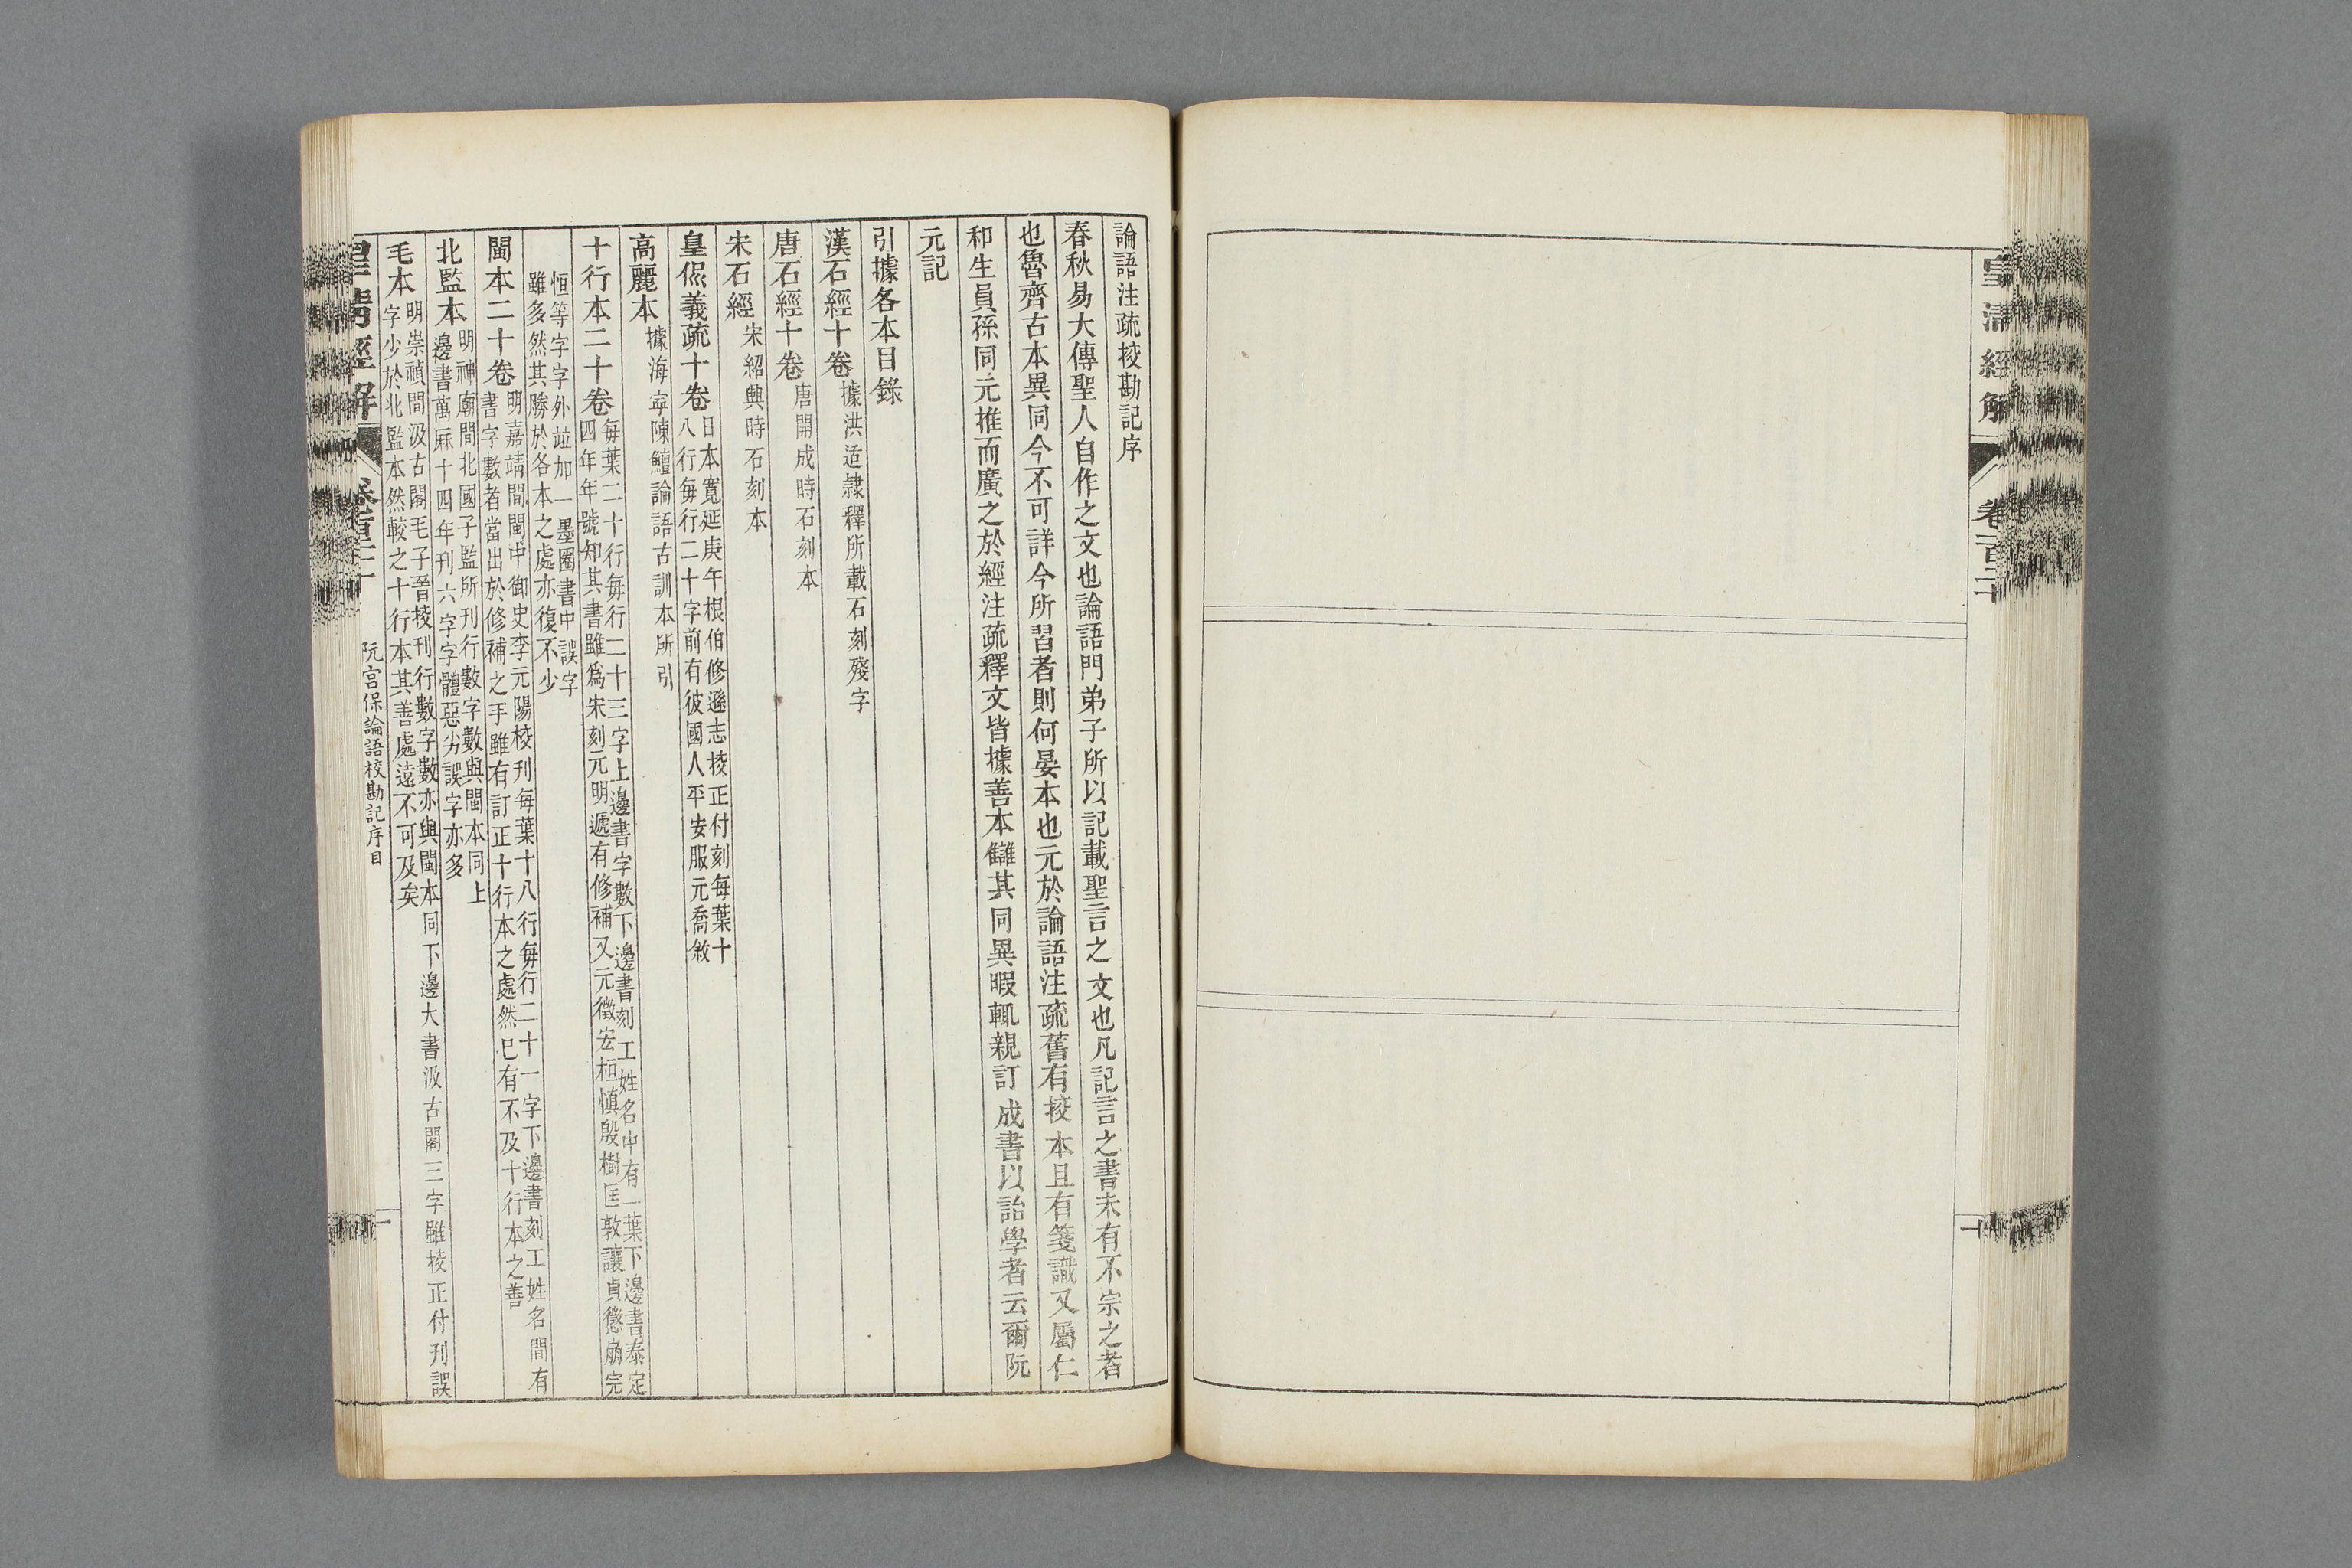 皇清經解
卷百二十
論語注疏挍勘記序
春秋易大傳聖人自作之文也論語門弟子所以記載聖言之文也凡記言之書未有不宗之者
也魯齊古本異同今不可詳今所習者則何晏本也元於論語注疏舊有挍本且有箋識又屬仁
和生員孫同元推而廣之於經注疏釋文皆據善本讎其同異暇輒親訂成書以詒學者云爾阮
元記
引據各本目錄
漢石經十卷
據洪适隸釋所載石刻殘字
唐石經十卷
唐開成時石刻本
宋石經
宋紹興時石刻本
皇侃義疏十卷
日本寬延庚午根伯修遜志挍正付刻每葉十
八行每行二十字前有彼國人平安服元喬敘
高麗本
據海寧陳鱣論語古訓本所引
十行本二十卷
每葉二十行每行二十三字上邊書字數下邊書刻工姓名中有一葉下邊書泰定
四年年號知其書雖爲宋刻元明遞有修補又元徵宏桓慎殷樹匡敦讓貞懲崩完
恒等字字外竝加一墨圈書中誤字
雖多然其勝於各本之處亦復不少
閩本二十卷
明嘉靖間閩中御史李元陽挍刊每葉十八行每行二十一字下邊書刻工姓名間有
書字數者當出於修補之手雖有訂正十行本之處然已有不及十行本之善
北監本
明神廟間北國子監所刊行數字數與閩本同上
邊書萬厤十四年刊六字字體惡劣誤字亦多
毛本
明崇禎間汲古閣毛子晉挍刊行數字數亦與閩本同下邊大書汲古閣三字雖挍正付刊誤
字少於北監本然較之十行本其善處遠不可及矣
皇清經解
卷百二十
阮宮保論語校勘記序目
一